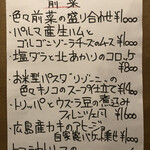 前菜
・色々前菜の盛り合わせ ¥1000
・パルマ産生ハムと
ゴルゴンゾーラチーズのムース ¥1000
・塩ダラと北あかりのコロッケ
¥800
・お米型パスタ"リゾーニ"の
色々キノコのスープ仕立て ¥400
・トリッパとウズラ豆の煮込み
フィレンツェ風 ¥600
・広島産カキの
自家製バケット乗せ ¥1000